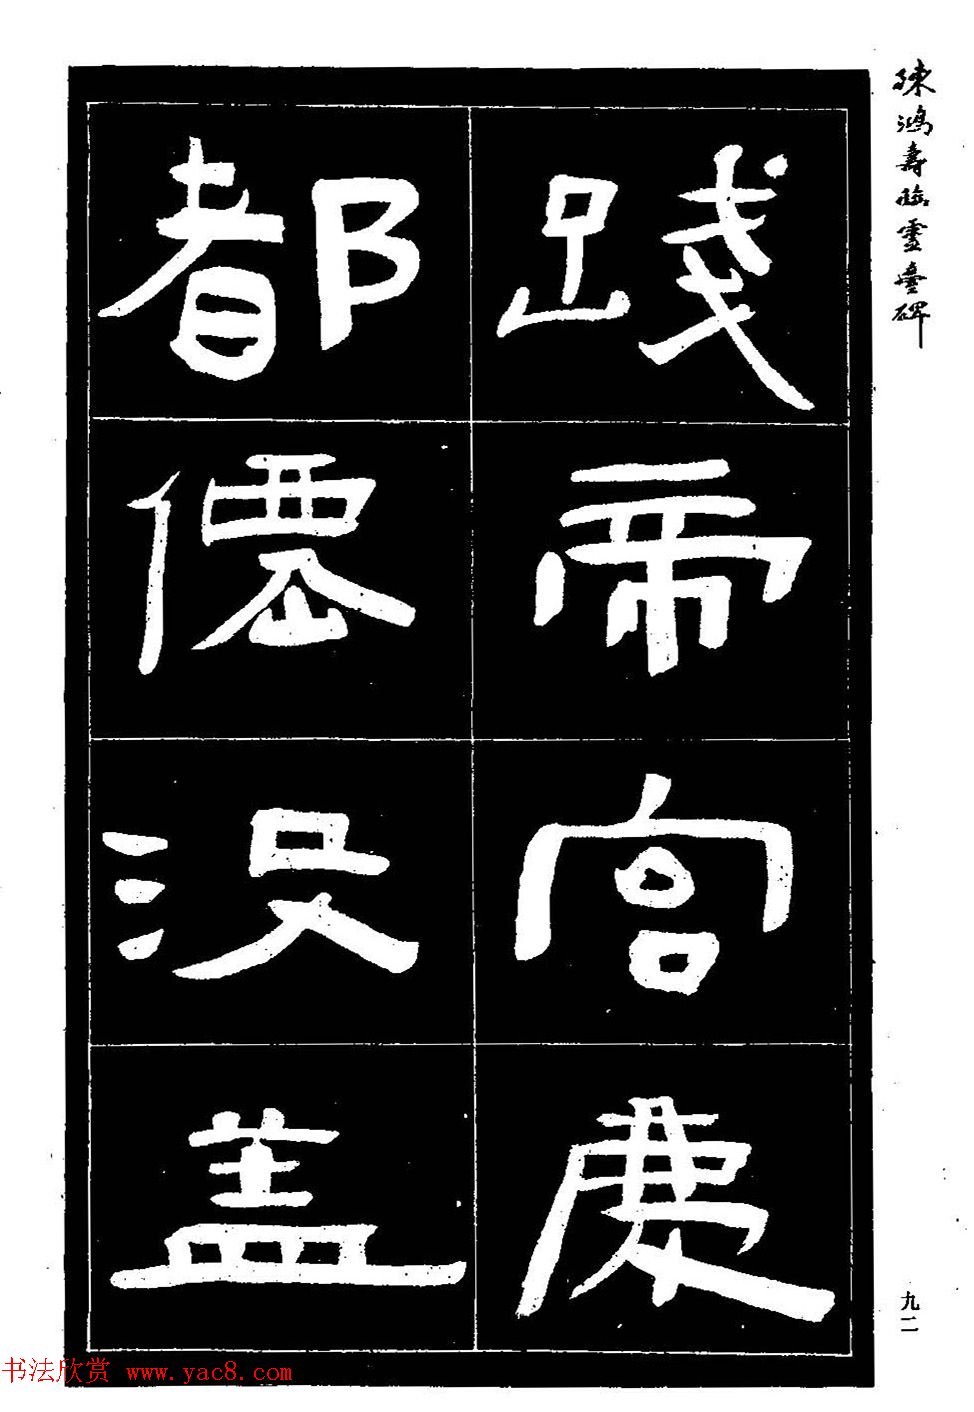 陳鴻壽臨靈臺碑
踐帝宮慶
都僊没盖
九二
书法欣赏 www.yac8.com